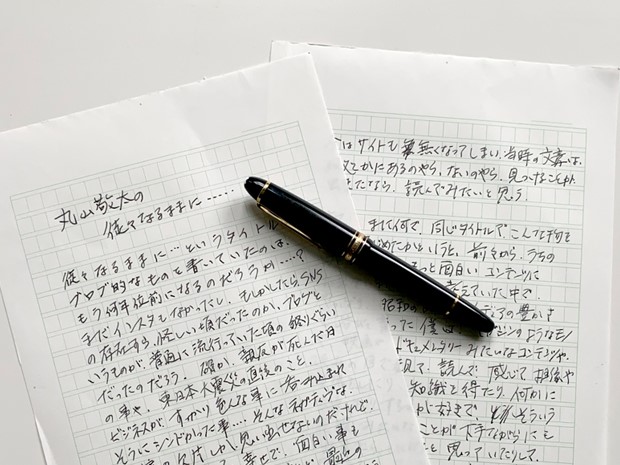 丸山敬太の
徒々なるままに……
徒々なるままに…というタイトル
ブログ的なものを書いていたのは、
もう何年位前になるのだろうか…?
まだインスタもなかったし、もしかしたらSNS
の存在すら怪しい頃だったのか、ブログと
いうものが、普通に流行っていた頃の綴りぐらい
だったのだろう。確か、親友が死んだ日
の事や、東日本大震災の直後のこと、
ビジネスが、すっかり色んな事に巻き込まれ
そうにシンドかった事…そんなネガティブな、
しか、思い出せないのだけれど、
幸せで、面白い事も
はサイトも無くなってしまい、当時の文章は、
どこかにあるのやら、ないのやら、見つかることが
たなら、読んでみたいと思う。
まて何で、同じタイトルでこんな物を
始めたかというと、前々から、うちの
もっと面白いコンテンツに
考えていた中で
昭和の ディアの豊かさ
った僕は ジンのようなモノ
ドキュメンタリーみたいなコンテンツや、
見て、読んで、感じて、想像や
知識を得たり、何かに
が好きで、 そういう
ことが下手ながらにも
思っていたりして、